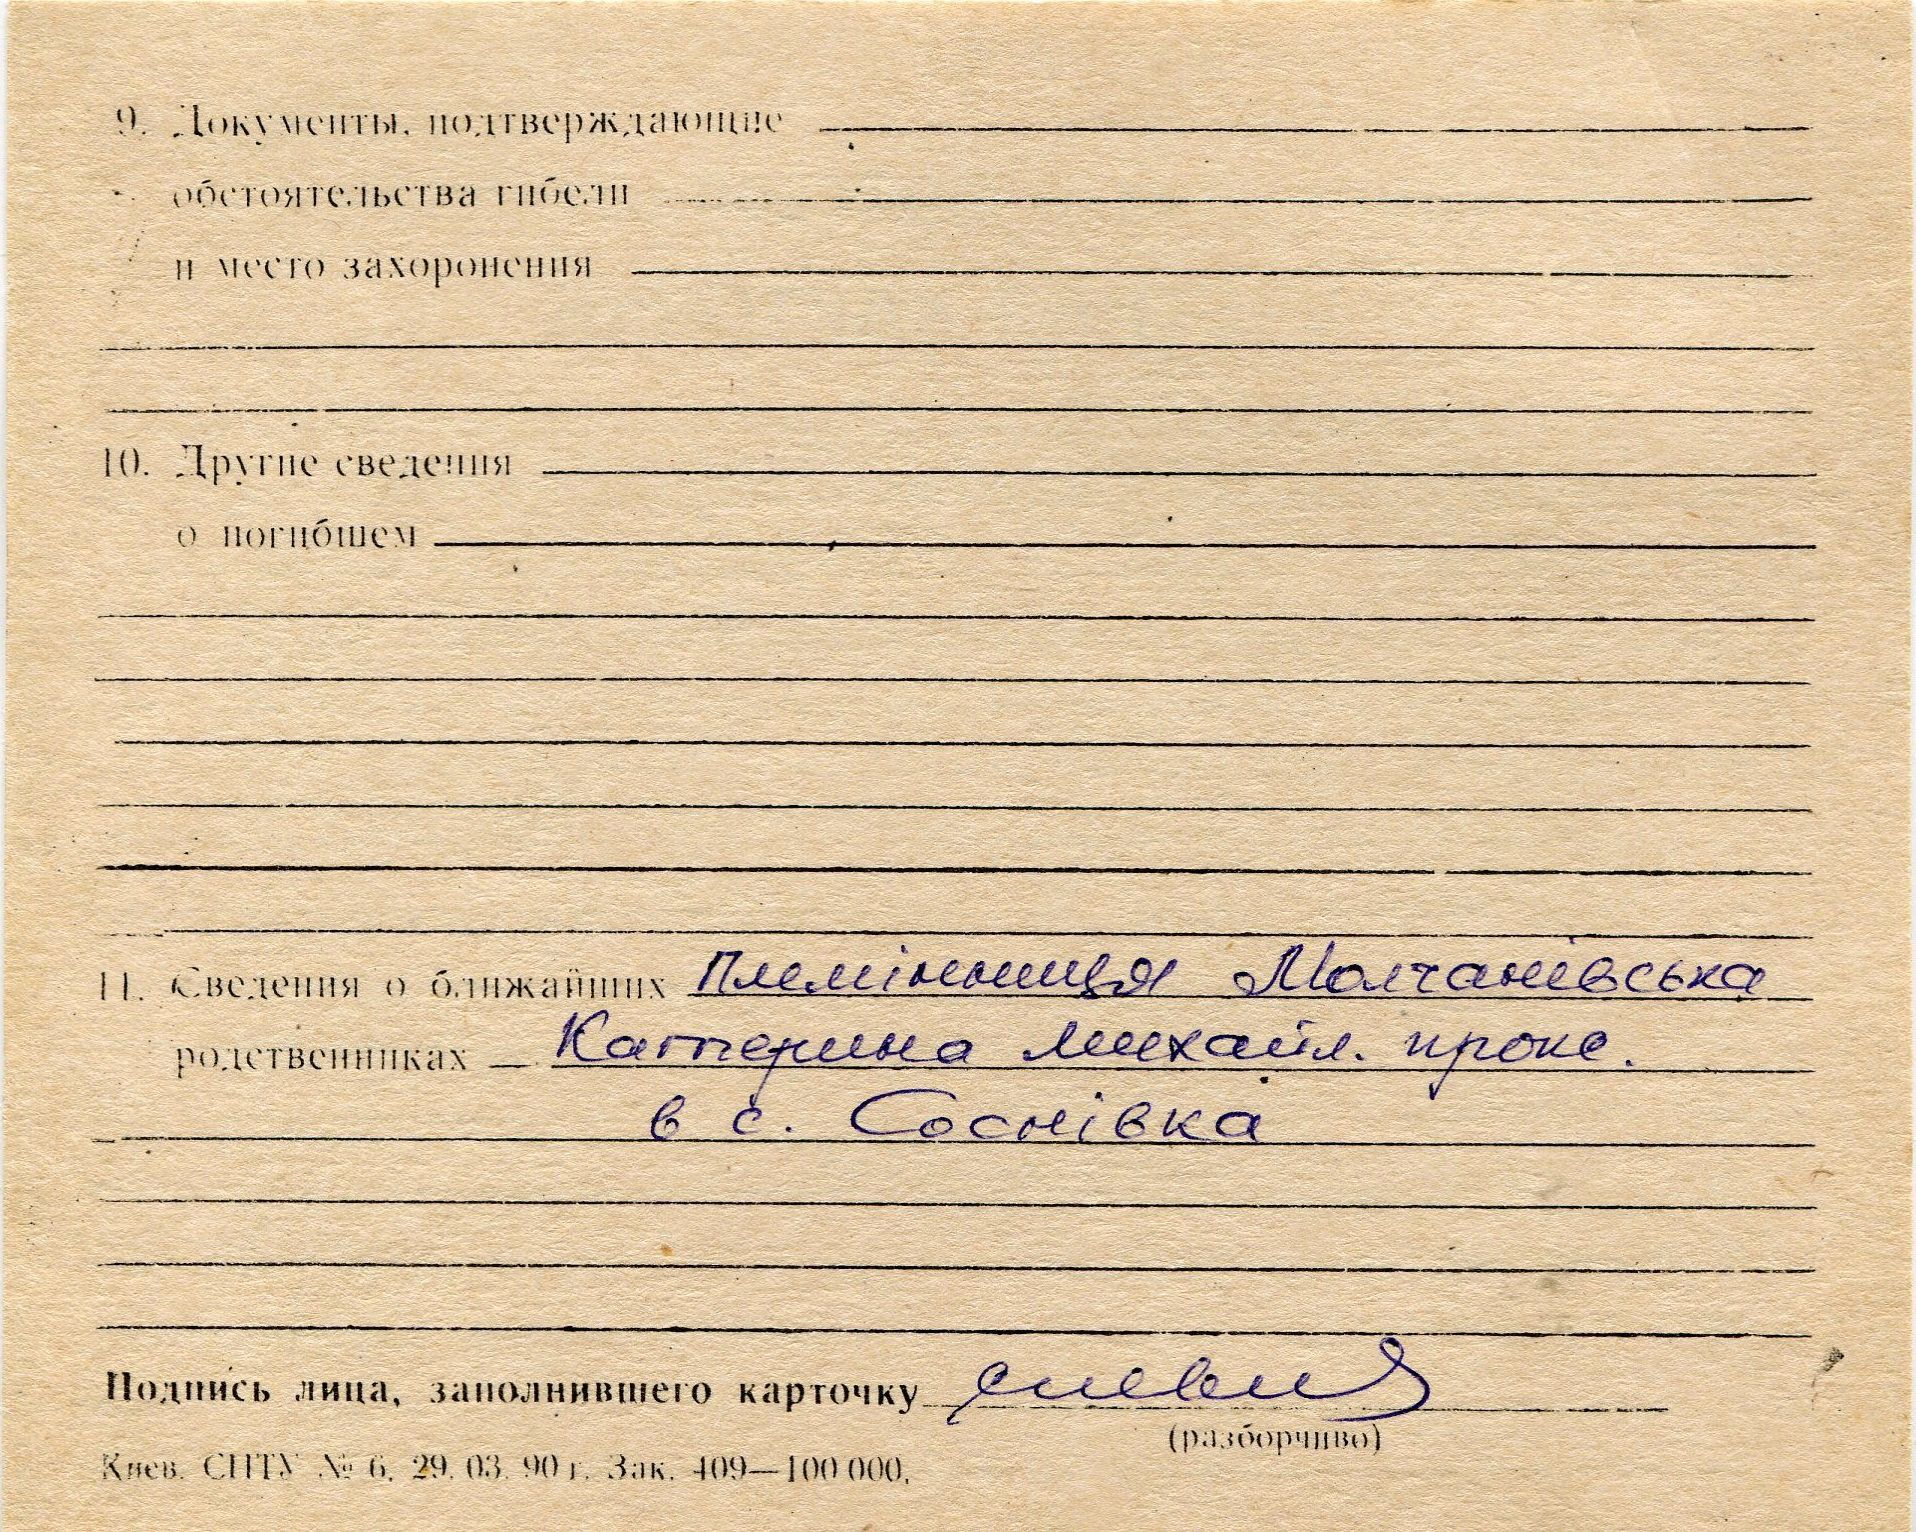 9. Документы, подтверждающие
обстоятельства гибели
и место захоронения
10. Другие сведения
о погибшем
11. Сведения о ближайших Племінниця Молчанівська
родственниках Катерина Михайл. прож.
в с. Соснівка
Подпись лица, заполнившего карточку
(разборчиво)
Киев. СПТУ № 6. 29. 03. 90 г. Зак. 409—100 000.